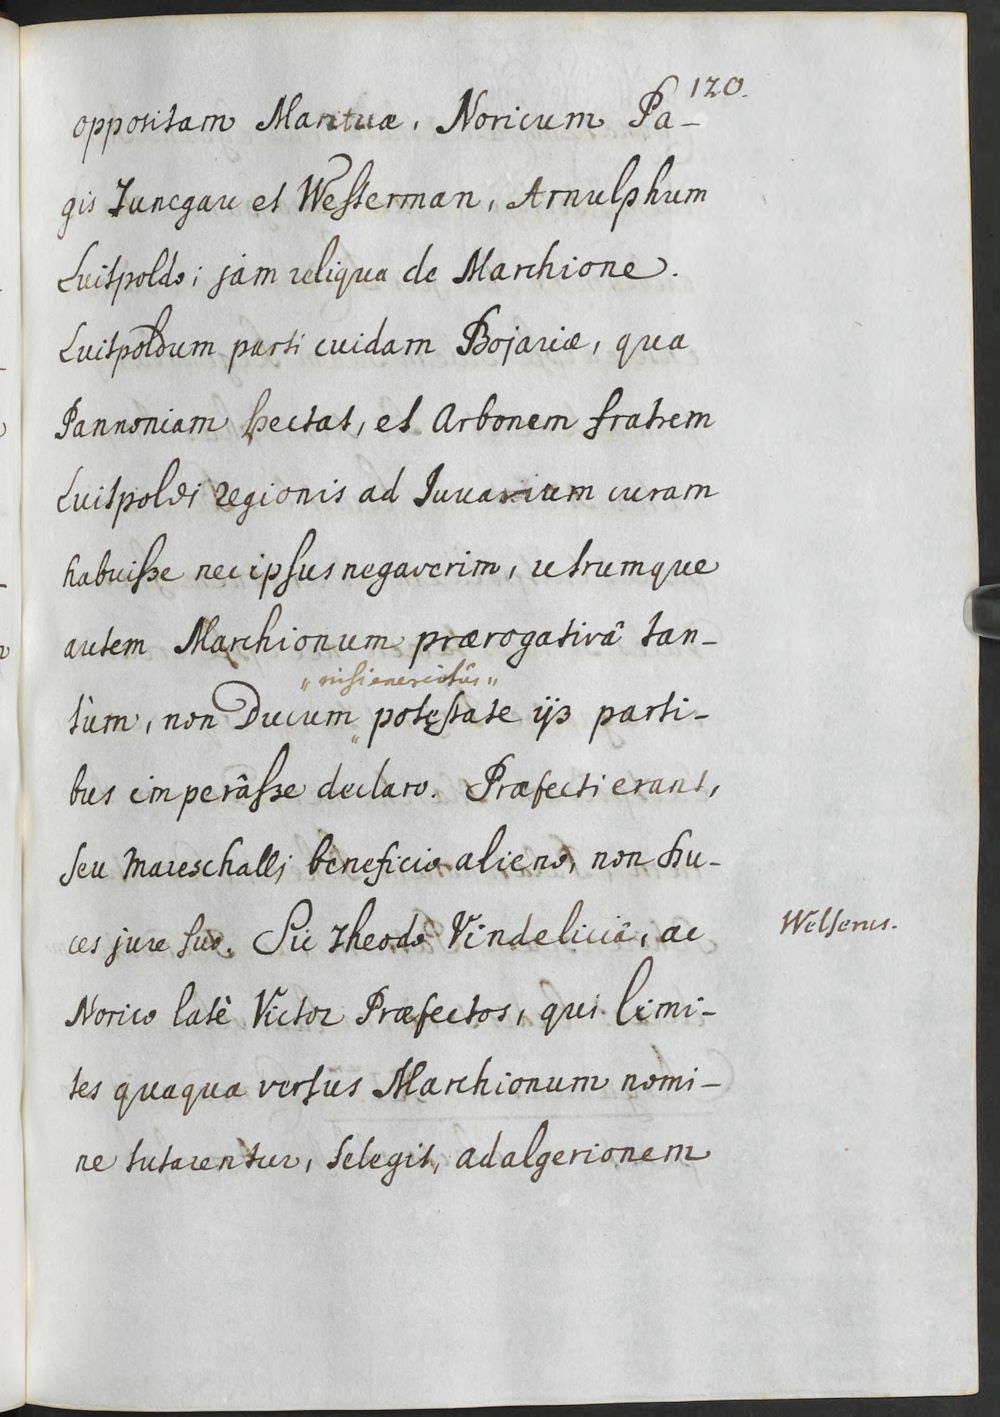 120.
oppositam Mantuæ, Noricum Pa-
gis Junegau et Westerman, Arnulphum
Luitpoldo; jàm reliqua de Marchione.
Luitpoldum parti cuidam Bojariæ, qua
Pannoniam spectat, et Arbonem fratrem
Luitpoldi regionis ad Juvavium curam
habuisse nec ipsus negaverim, utrumque
autem Marchionum prærogativâ tan-
tùm, non Ducum potestate ijs parti-
bus imperâsse declaro. Præfecti erant,
seu Mareschalli beneficio alieno, non Du-
ces jure suo. Sic Theodo Vindeliciâ, ac
Welserus.
Norico latè Victor Præfectos, qui limi-
tes quaqua versus Marchionum nomi-
ne tutarentur, selegit, adalgerionem